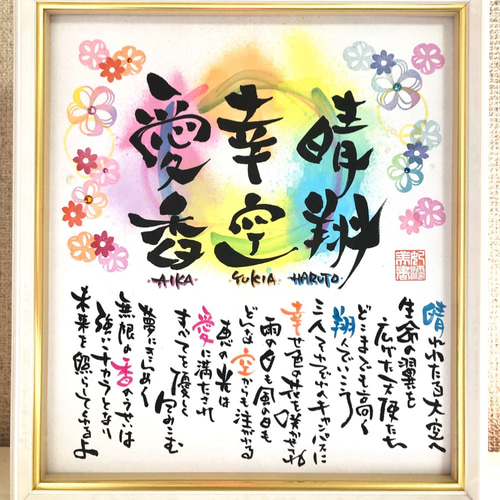 晴翔
HARUTO
幸空
YUKIA
愛香
AIKA
晴れわたる大空へ
生命の翼を
広げた天使たち
どこまでも高く
翔んでいこう
キャンバスに
幸せ色の花を
雨の日も風の日も
空からも注がれる
恵の光は
愛に満たされ
すべてを優しく包みこむ
夢にきらめく
無限の香の
強いチカラとなり
未来を照らしてくれるよ